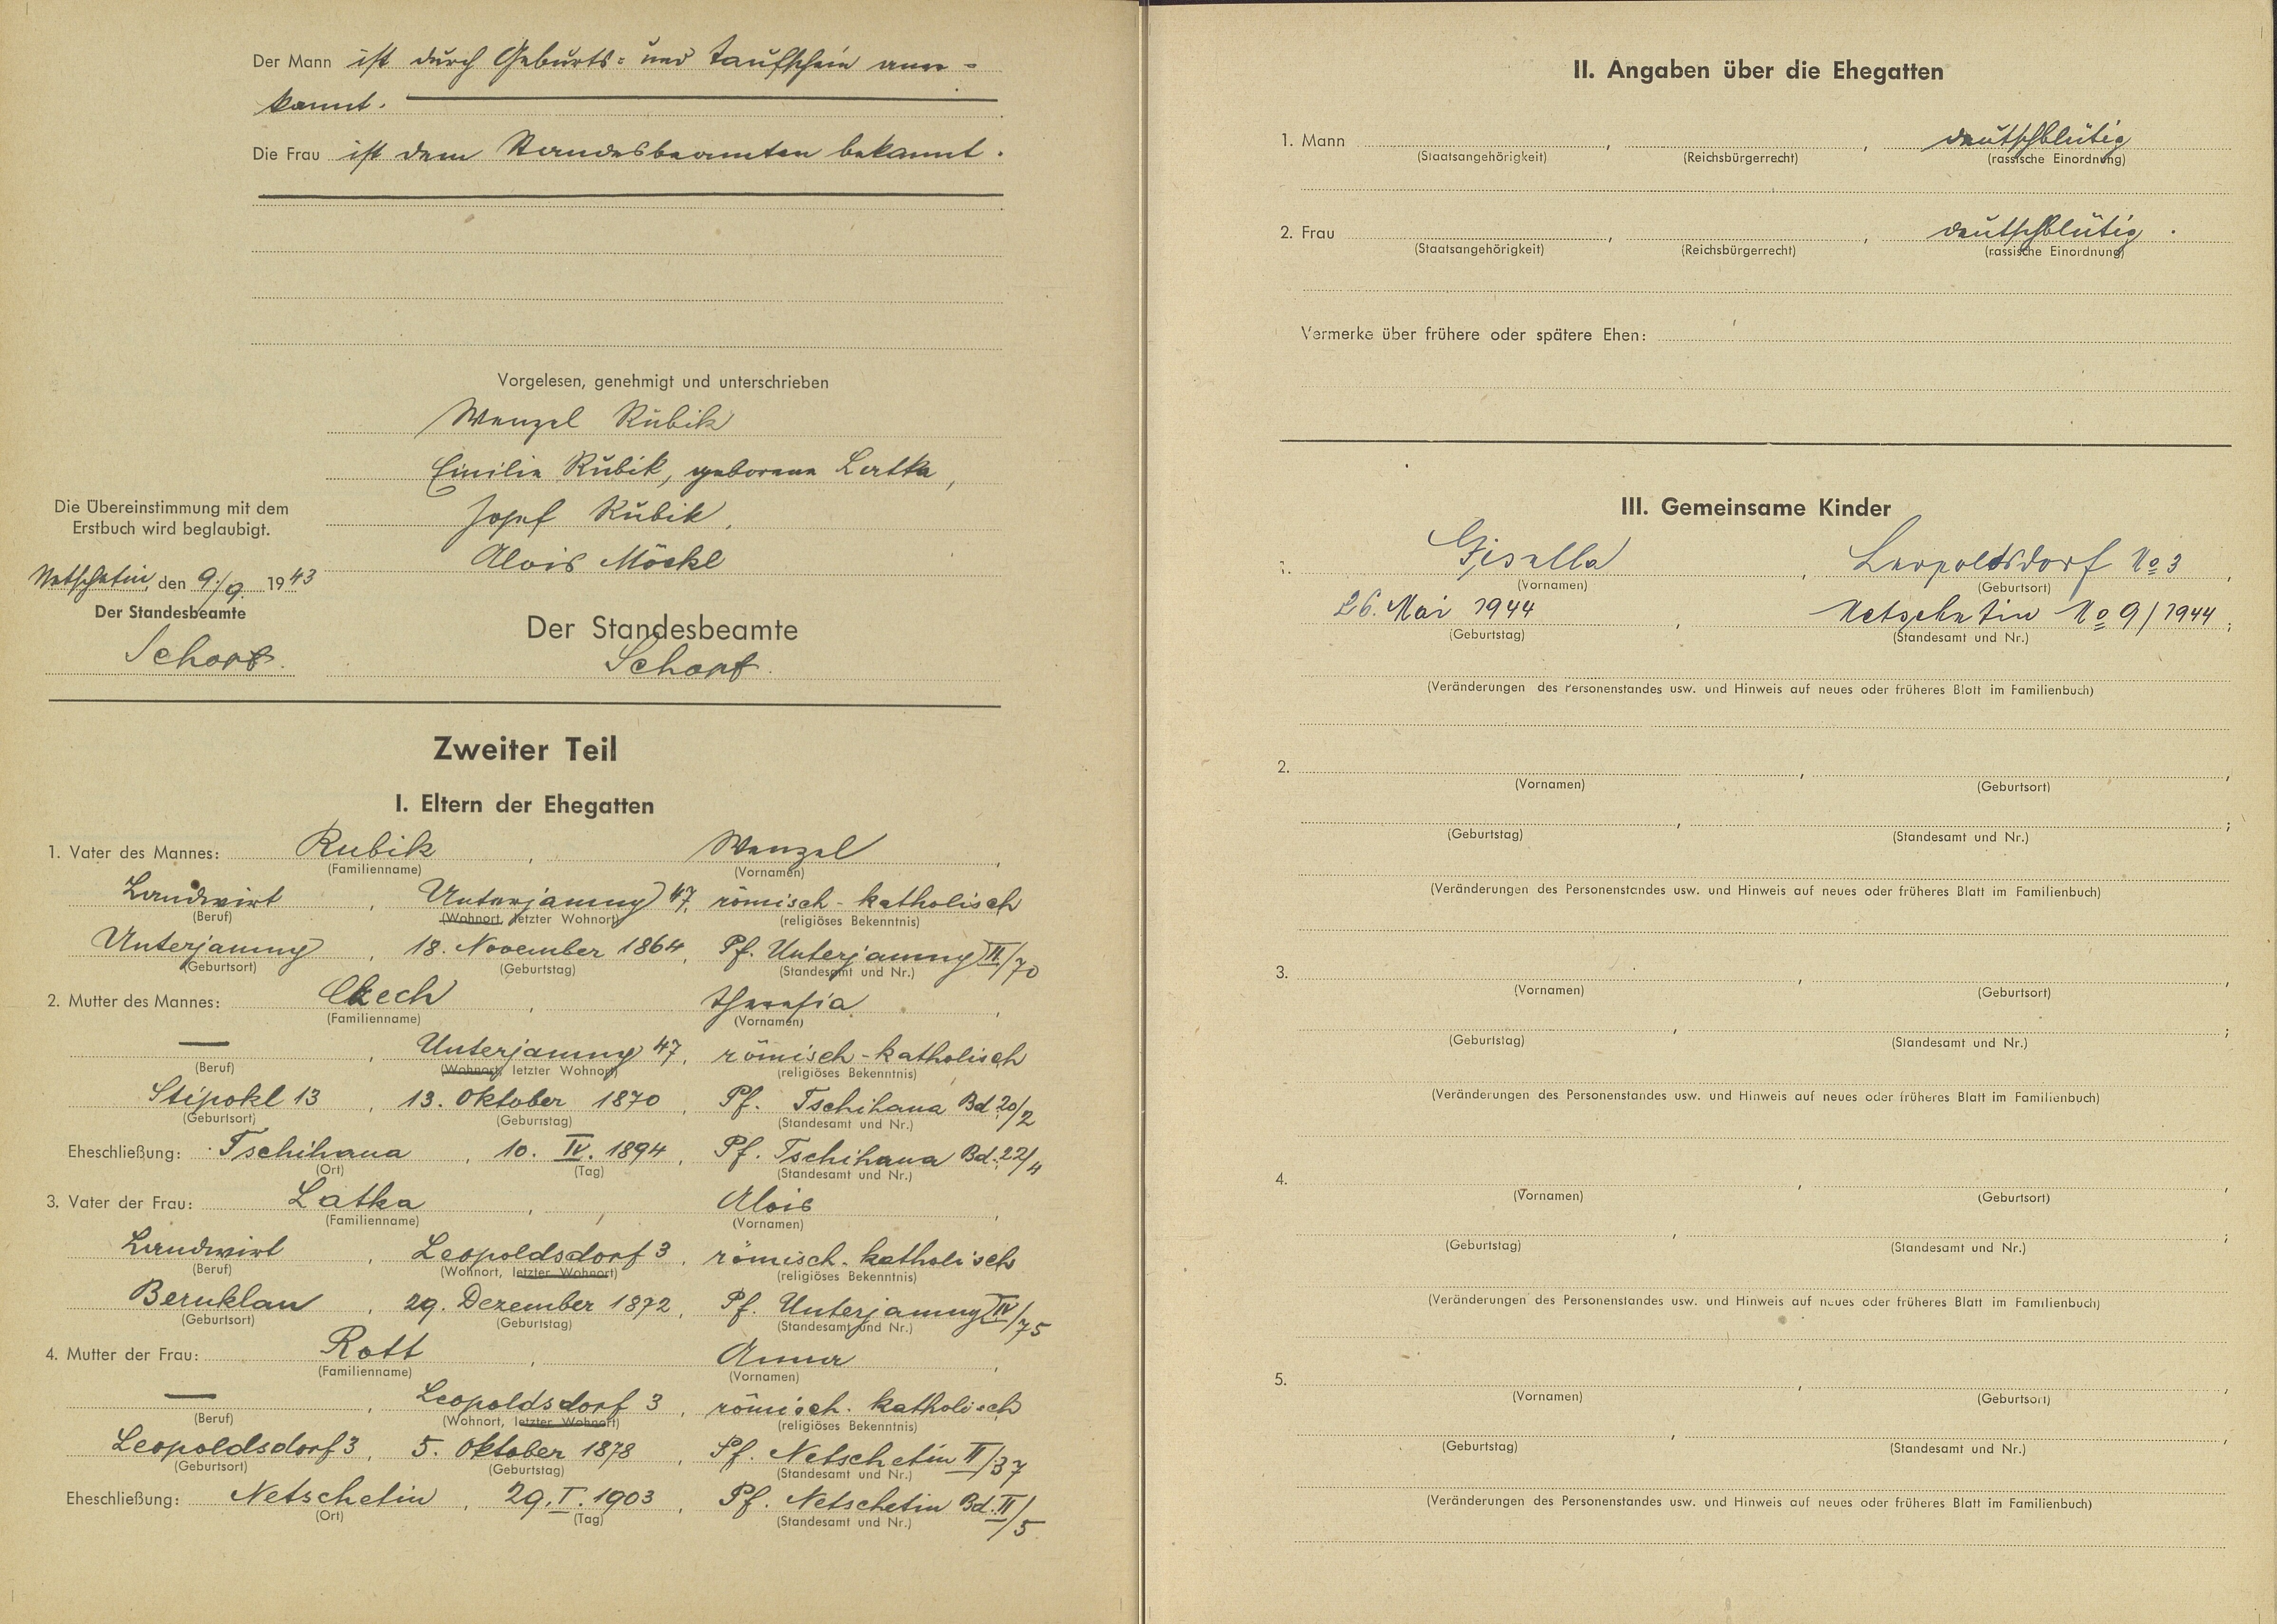 Der Mann ist durch Geburts= und Taufschein aner=
kannt.
Die Frau ist dem Standesbeamten bekannt.
Vorgelesen, genehmigt und unterschrieben
Wenzel Rubik
Emilie Rubik, geborene Latka,
Josef Rubik.
Alois Möckl
Die Übereinstimmung mit dem
Erstbuch wird beglaubigt.
Netschetin, den 9./9. 1943
Der Standesbeamte
Der Standesbeamte
Zweiter Teil
I. Eltern der Ehegatten
1. Vater des Mannes: Rubik, Wenzel,
(Familienname) (Vornamen)
Landwirt, Unterjamny 47, römisch-katholisch
(Beruf) (Wohnort, letzter Wohnort) (religiöses Bekenntnis)
Unterjamny, 18. November 1864, Pf. Unterjamny II/70
(Geburtsort) (Geburtstag) (Standesamt und Nr.)
2. Mutter des Mannes: Theresia,
(Familienname) (Vornamen)
—, Unterjamny 47, römisch-katholisch
(Beruf) (Wohnort, letzter Wohnort) (religiöses Bekenntnis)
Stipokl 13, 13. Oktober 1870, Pf. Tschihana Bd. 20/2
(Geburtsort) (Geburtstag) (Standesamt und Nr.)
Eheschließung: Tschihana, 10. IV. 1894, Pf. Tschihana Bd. 22/4
(Ort) (Tag) (Standesamt und Nr.)
3. Vater der Frau: Latka, Alois,
(Familienname) (Vornamen)
Landwirt, Leopoldsdorf 3, römisch-katholisch
(Beruf) (Wohnort, letzter Wohnort) (religiöses Bekenntnis)
Bernklau, 29. Dezember 1872, Pf. Unterjamny IV/75
(Geburtsort) (Geburtstag) (Standesamt und Nr.)
4. Mutter der Frau: Rott, Anna,
(Familienname) (Vornamen)
—, Leopoldsdorf 3, römisch-katholisch
(Beruf) (Wohnort, letzter Wohnort) (religiöses Bekenntnis)
Leopoldsdorf 3, 5. Oktober 1878, Pf. Netschetin II/37
(Geburtsort) (Geburtstag) (Standesamt und Nr.)
Eheschließung: Netschetin, 29. I. 1903, Pf. Netschetin Bd. II/5
(Ort) (Tag) (Standesamt und Nr.)
II. Angaben über die Ehegatten
1. Mann , , deutschblütig
(Staatsangehörigkeit) (Reichsbürgerrecht) (rassische Einordnung)
2. Frau , , deutschblütig.
(Staatsangehörigkeit) (Reichsbürgerrecht) (rassische Einordnung)
Vermerke über frühere oder spätere Ehen:
III. Gemeinsame Kinder
1. Gisella, Leopoldsdorf No 3,
(Vornamen) (Geburtsort)
26. Mai 1944, Netschetin No 9/1944;
(Geburtstag) (Standesamt und Nr.)
(Veränderungen des Personenstandes usw. und Hinweis auf neues oder früheres Blatt im Familienbuch)
2. , ,
(Vornamen) (Geburtsort)
, ;
(Geburtstag) (Standesamt und Nr.)
(Veränderungen des Personenstandes usw. und Hinweis auf neues oder früheres Blatt im Familienbuch)
3. , ,
(Vornamen) (Geburtsort)
, ;
(Geburtstag) (Standesamt und Nr.)
(Veränderungen des Personenstandes usw. und Hinweis auf neues oder früheres Blatt im Familienbuch)
4. , ,
(Vornamen) (Geburtsort)
, ;
(Geburtstag) (Standesamt und Nr.)
(Veränderungen des Personenstandes usw. und Hinweis auf neues oder früheres Blatt im Familienbuch)
5. , ,
(Vornamen) (Geburtsort)
, ,
(Geburtstag) (Standesamt und Nr.)
(Veränderungen des Personenstandes usw. und Hinweis auf neues oder früheres Blatt im Familienbuch)